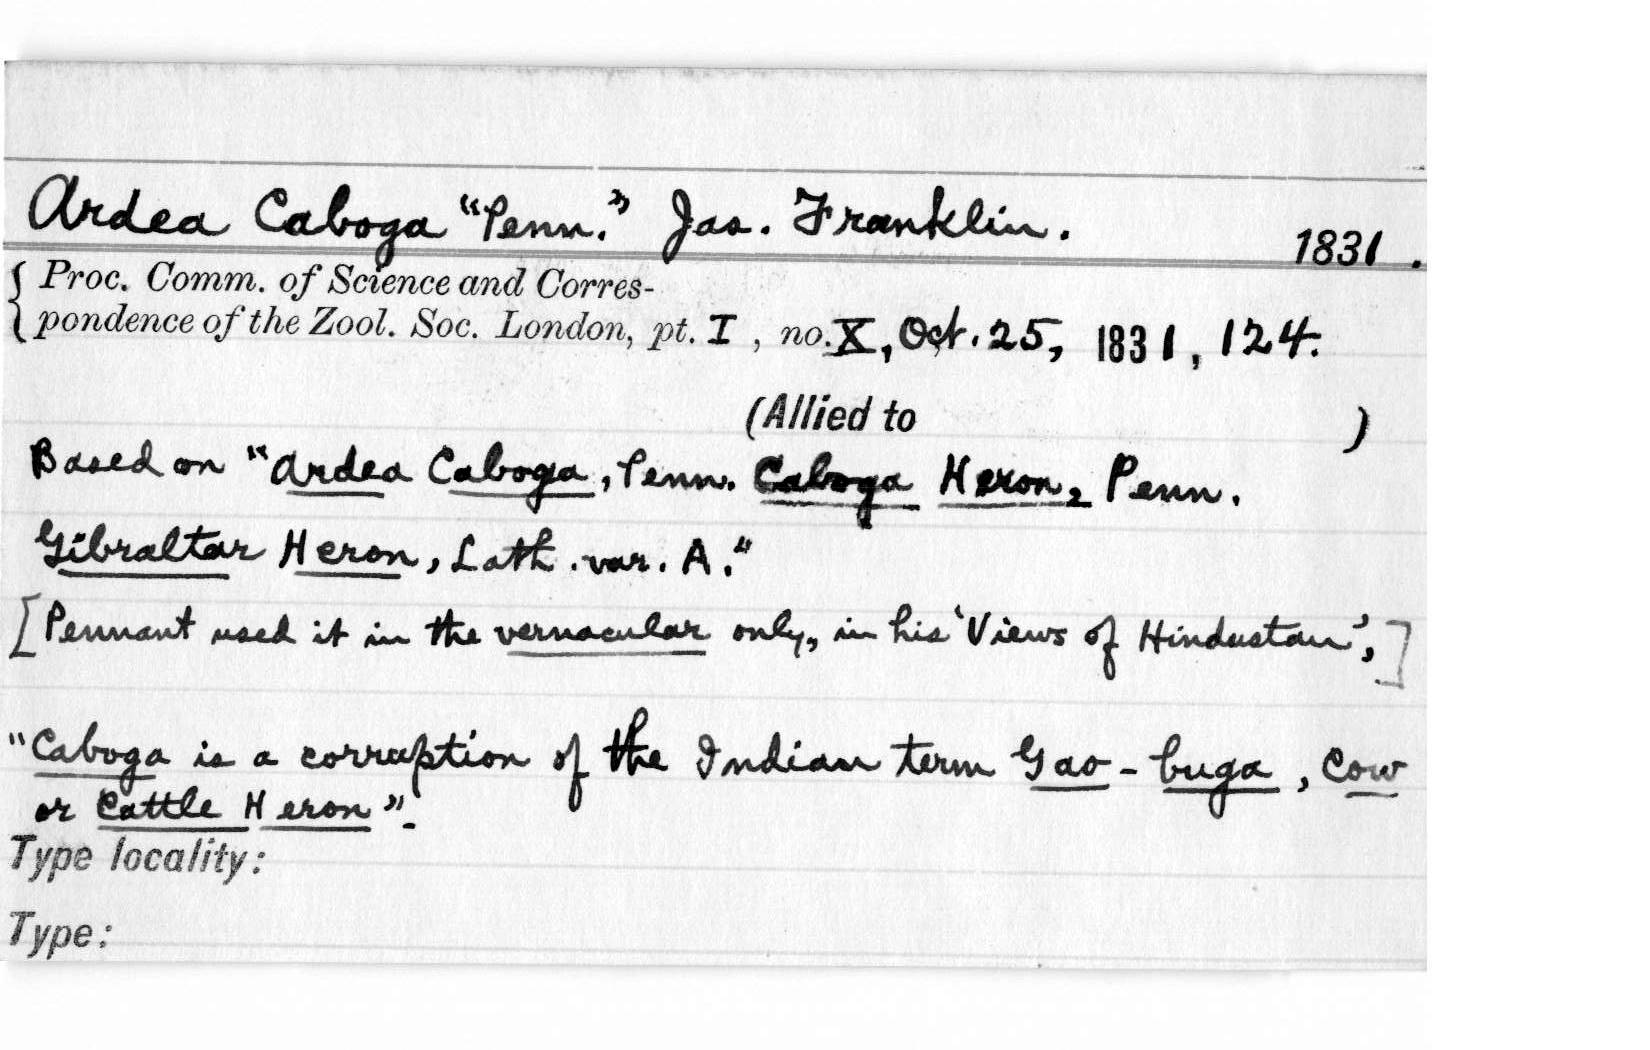 Ardea Caboga "Penn." Jas. Franklin. 1831.
Proc. Comm. of Science and Corres-
pondence of the Zool. Soc. London, pt. I, no. X, Oct. 25, 1831, 124.
(Allied to )
Based on "Ardea Caboga, Penn. Caboga Heron, Penn.
Gibraltar Heron, Lath. var. A."
[Pennant used it in the vernacular only, in his 'Views of Hindustan',]
"Caboga is a corruption of the Indian term Gao-buga, Cow
or Cattle Heron".
Type locality:
Type: